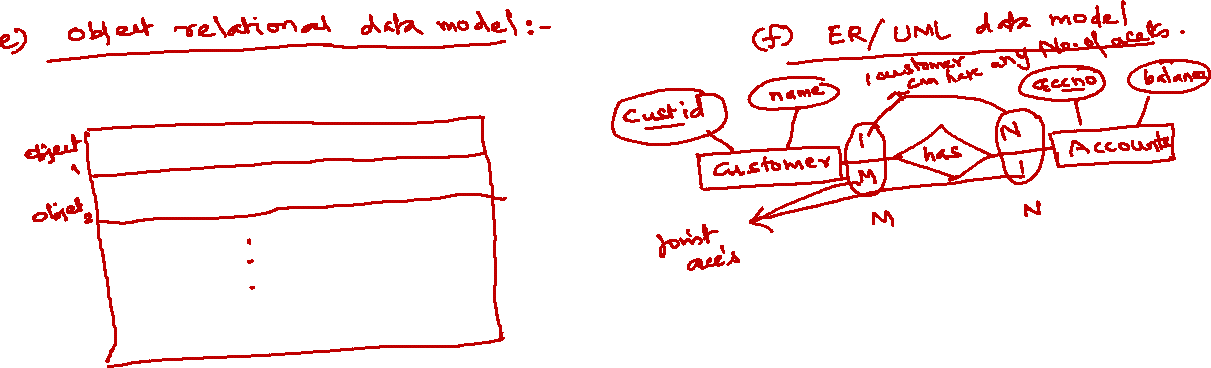 e) object relational data model:-
object 1
object 2
(f) ER/UML data model
1 customer can have any No. of accts.
custid
name
accno
balance
customer
1
M
has
N
1
Accounts
M
N
joint
acc's